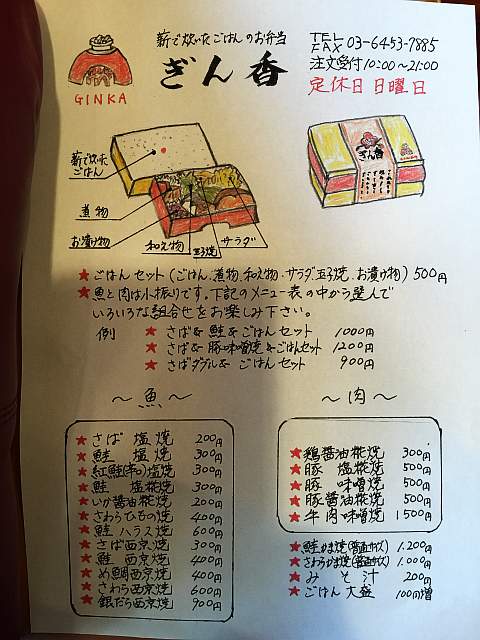 薪で炊いたごはんのお弁当
ぎん香
GINKA
TEL
FAX 03-6453-7885
注文受付10:00～21:00
定休日 日曜日
薪で炊いた
ごはん
煮物
お漬け物
和え物
玉子焼
サラダ
ぎん香
GINKA
★ごはんセット(ごはん.煮物.和え物.サラダ.玉子焼.お漬け物)500円
★魚と肉は小振りです。下記のメニュー表の中から選んで
いろいろな組合せをお楽しみ下さい。
例 ★ さば& 鮭 & ごはんセット 1000円
★ さば& 豚味噌焼 & ごはんセット 1200円
★ さばダブル& ごはんセット 900円
～魚～
★さば 塩焼 200円
★鮭 塩焼 300円
★紅鮭(辛口)塩焼 300円
★鮭 塩糀焼 300円
★いか醤油糀焼 200円
★さわらひもの焼 400円
★鮭 ハラス焼 600円
★さば西京焼 300円
★鮭 西京焼 400円
★め鯛西京焼 400円
★さわら西京焼 600円
★銀だら西京焼 900円
～肉～
★鶏醤油糀焼 300円
★豚 塩糀焼 500円
★豚 味噌焼 500円
★豚醤油糀焼 500円
★牛肉味噌焼 1500円
★鮭かま焼(普通サイズ) 1.200円
★さわらかま焼(普通サイズ) 1.000円
★み そ 汁 200円
★ごはん 大盛 100円増